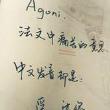 Agoni.
法文中痛苦的意思
中文发音却是:
爱